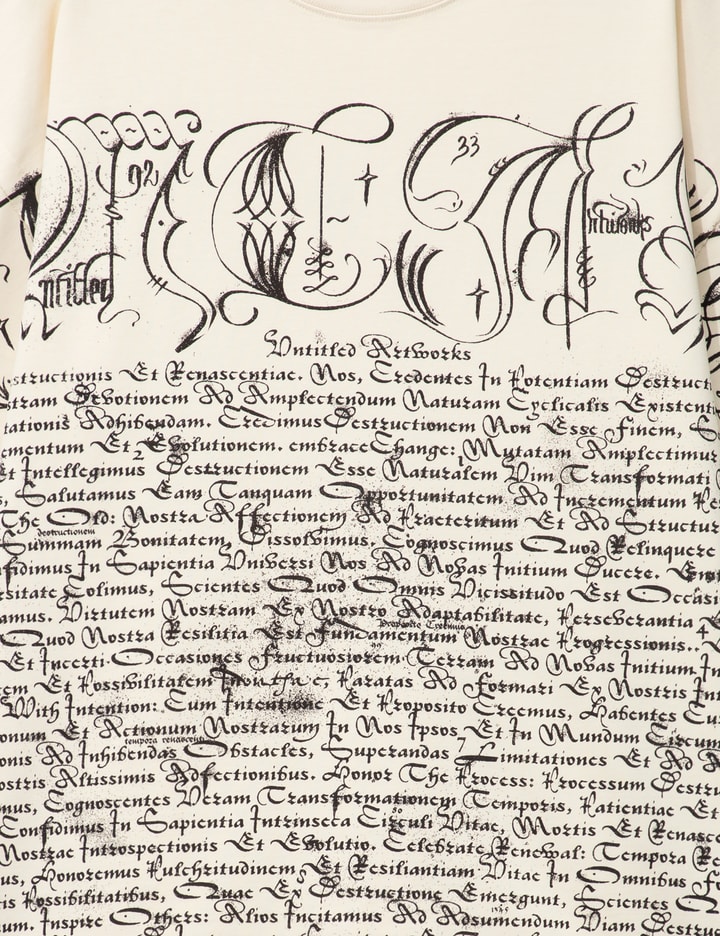 92
33
Untitled Artworks
structionis Et Renascentiae. Nos, Credentes In Potentiam Destructi
stram Devotionem Ad Amplectendum Naturam Cyclicalis Existent
tationis Adhibendam. Credimus Destructionem Non Esse Finem, S
ementum Et Evolutionem. embrace Change: Mutatam Amplectimur
Et Intellegimus Destructionem Esse Naturalem Vim Transformati
s, Salutamus Eam Tanquam Opportunitatem Ad Incrementum Pe
The Old: Nostra Affectionem Ad Praeteritum Et Ad Structur
destructionem
Summam Bonitatem Dissolvimus. Cognoscimus Quod Relinquere
fidimus In Sapientia Universi Nos Ad Novas Initium Ducere.
rsitate Colimus, Scientes Quod Omnis Vicissitudo Est Occasi
amus. Virtutem Nostram Ex Nostro Adaptabilitate, Perseverantia E
Quod Nostra Resilitia Est Fundamentum Nostrae Progressionis.. 4
Et Incerti Occasiones Fructuosiorem Terram Ad Novas Initium In
em Et Possibilitatem Paratas Ad Formari Ex Nostris In
With Intention: Cum Intentione Et Proposito Creemus, Habentes Cu
onum Et Actionum Nostrarum In Nos Ipsos Et In Mundum Circum
tempora renascenti
onis Ad Inhibendas Obstacles, Superandas 7 Limitationes Et Ad
ostris Altissimis Adfectionibus. Honor The Process: Processum Destru
mus, Cognoscentes Veram Transformationem Temporis, Patientiae Et
Confidimus In Sapientia Intrinseca Circuli Vitae, Mortis Et Renasc
Nostrae Introspectionis Et Evolutio. Celebrate Renewal: Tempora Re
us, Honoremus Pulchritudinem Et Resiliantiam Vitae In Omnibus Fo
is Possibilitatibus, Quae Ex Destructione Emergunt, Scientes
um. Inspire Others: Alios Incitamus Ad Adsumendum Viam Destruc